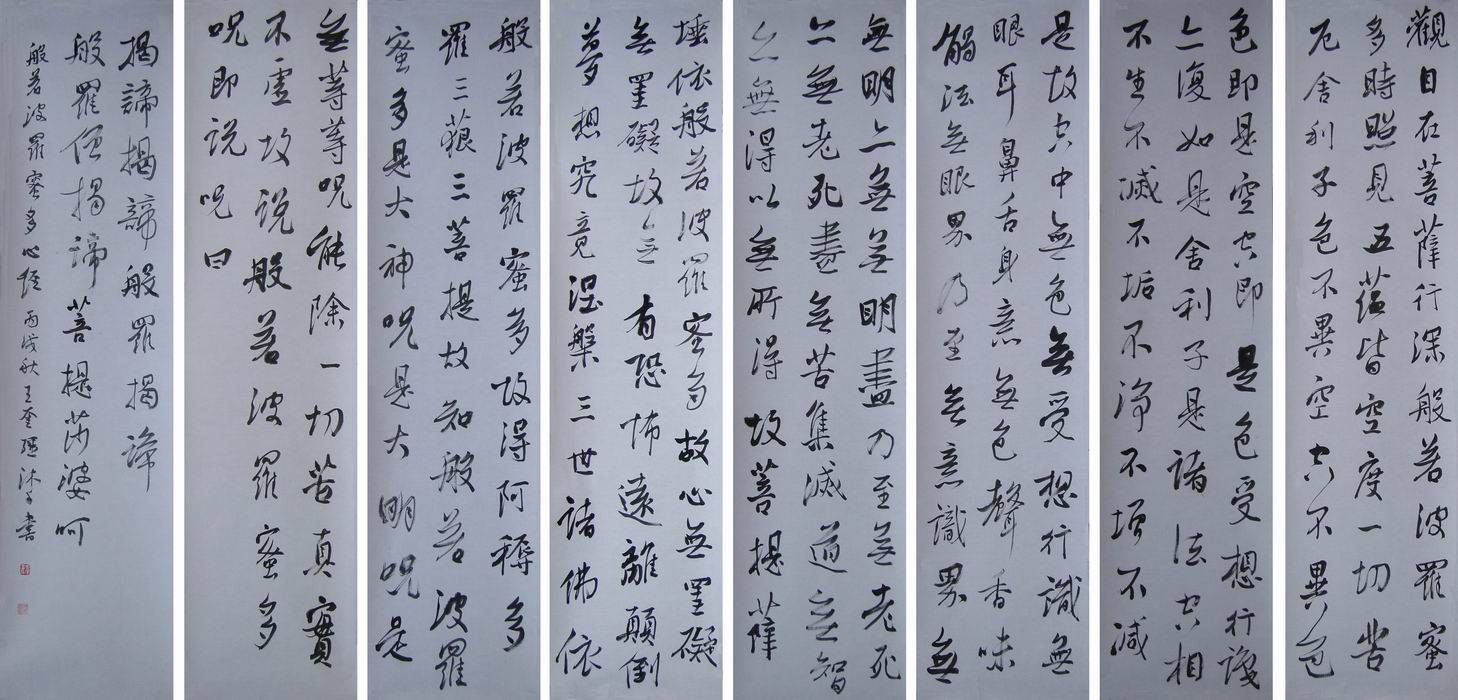 觀自在菩薩行深般若波羅蜜
多時照見五蘊皆空度一切苦
厄舍利子色不異空空不異色
色即是空空即是色受想行識
亦復如是舍利子是諸法空相
不生不滅不垢不淨不增不減
是故空中無色無受想行識無
眼耳鼻舌身意無色聲香味
觸法無眼界乃至無意識界無
無明亦無無明盡乃至無老死
亦無老死盡無苦集滅道無智
亦無得以無所得故菩提薩
埵依般若波羅蜜多故心無罣礙
無罣礙故無有恐怖遠離顛倒
夢想究竟涅槃三世諸佛依
般若波羅蜜多故得阿耨多
羅三藐三菩提故知般若波羅
蜜多是大神呪是大明呪是
無等等呪能除一切苦真實
不虛故説般若波羅蜜多
呪即説呪曰
揭諦揭諦般羅揭諦
般羅僧揭諦菩提莎婆呵
般若波羅蜜多心經 丙戌秋王奎沐手書